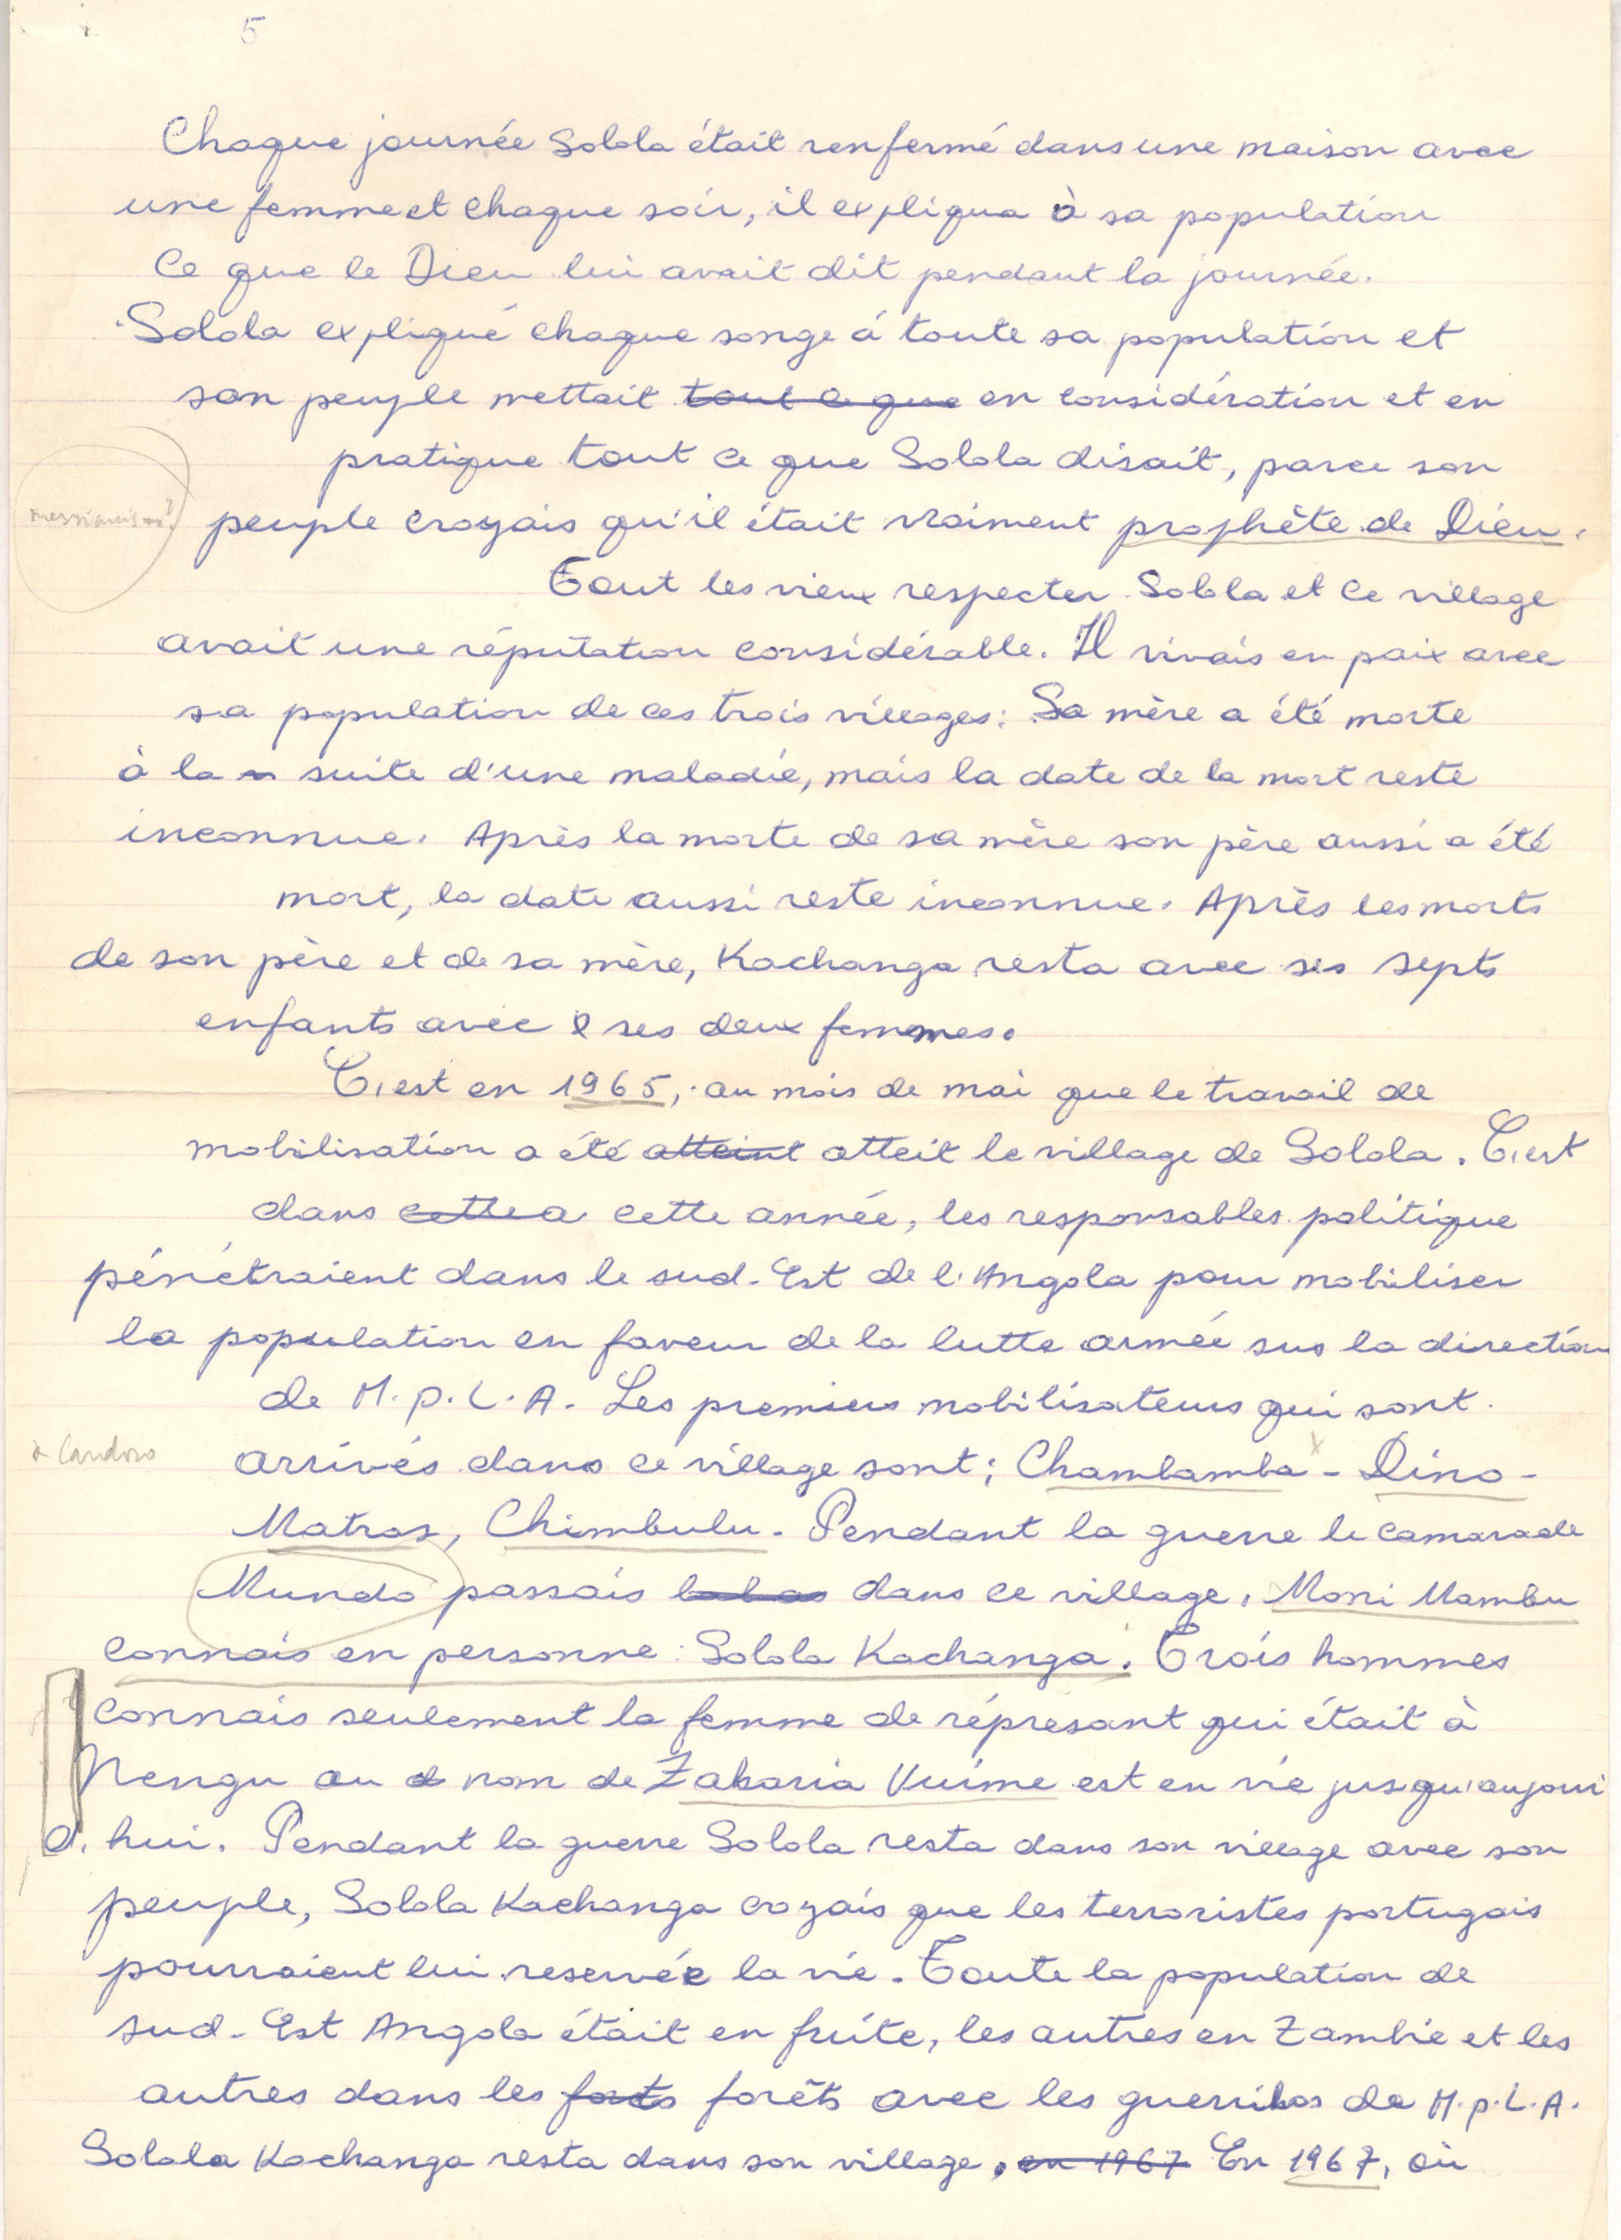 5
Chaque journée Solola était renfermé dans une maison avec
une femme et chaque soir, il expliqua à sa population
ce que le Dieu lui avait dit pendant la journée.
Solola expliqué chaque songe á toute sa population et
son peuple mettait tout ce que en considération et en
pratique tout ce que Solola disait, parce son
messianisme?
peuple croyais qu'il était vraiment prophète de Dieu.
Tout les vieux respecter Solola et ce village
avait une réputation considérable. Il vivais en paix avec
sa population de ces trois villages. Sa mère a été morte
à la suite d'une maladie, mais la date de la mort reste
inconnue. Après la morte de sa mère son père aussi a été
mort, la date aussi reste inconnue. Après les morts
de son père et de sa mère, Kachanga resta avec ses septs
enfants avec ses deux femmes.
C'est en 1965, au mois de mai que le travail de
mobilisation a été atteint atteit le village de Solola. C'est
dans cette a cette année, les responsables politique
pénétraient dans le sud-Est de l'Angola pour mobiliser
la population en faveur de la lutte armée sus la direction
de M.P.L.A. Les premiers mobilisateurs qui sont
arrivés dans ce village sont; Chambamba x - Dino -
x Candoso
Matros, Chimbulu. Pendant la guerre le camarade
Mundo passais dans ce village. Moni Mambu
connais en personne: Solola Kachanga. Trois hommes
connais seulement la femme de réprésant qui était à
Nengu au nom de Zakaria Vuime est en vie jusqu'aujour
d'hui. Pendant la guerre Solola resta dans son village avec son
peuple, Solola Kachanga croyais que les terroristes portugais
pourraient lui reservée la vie. Toute la population de
sud-Est Angola était en fuite, les autres en Zambie et les
autres dans les forts forêts avec les guerrilos de M.P.L.A.
Solola Kachanga resta dans son village. en 1967 En 1967, où